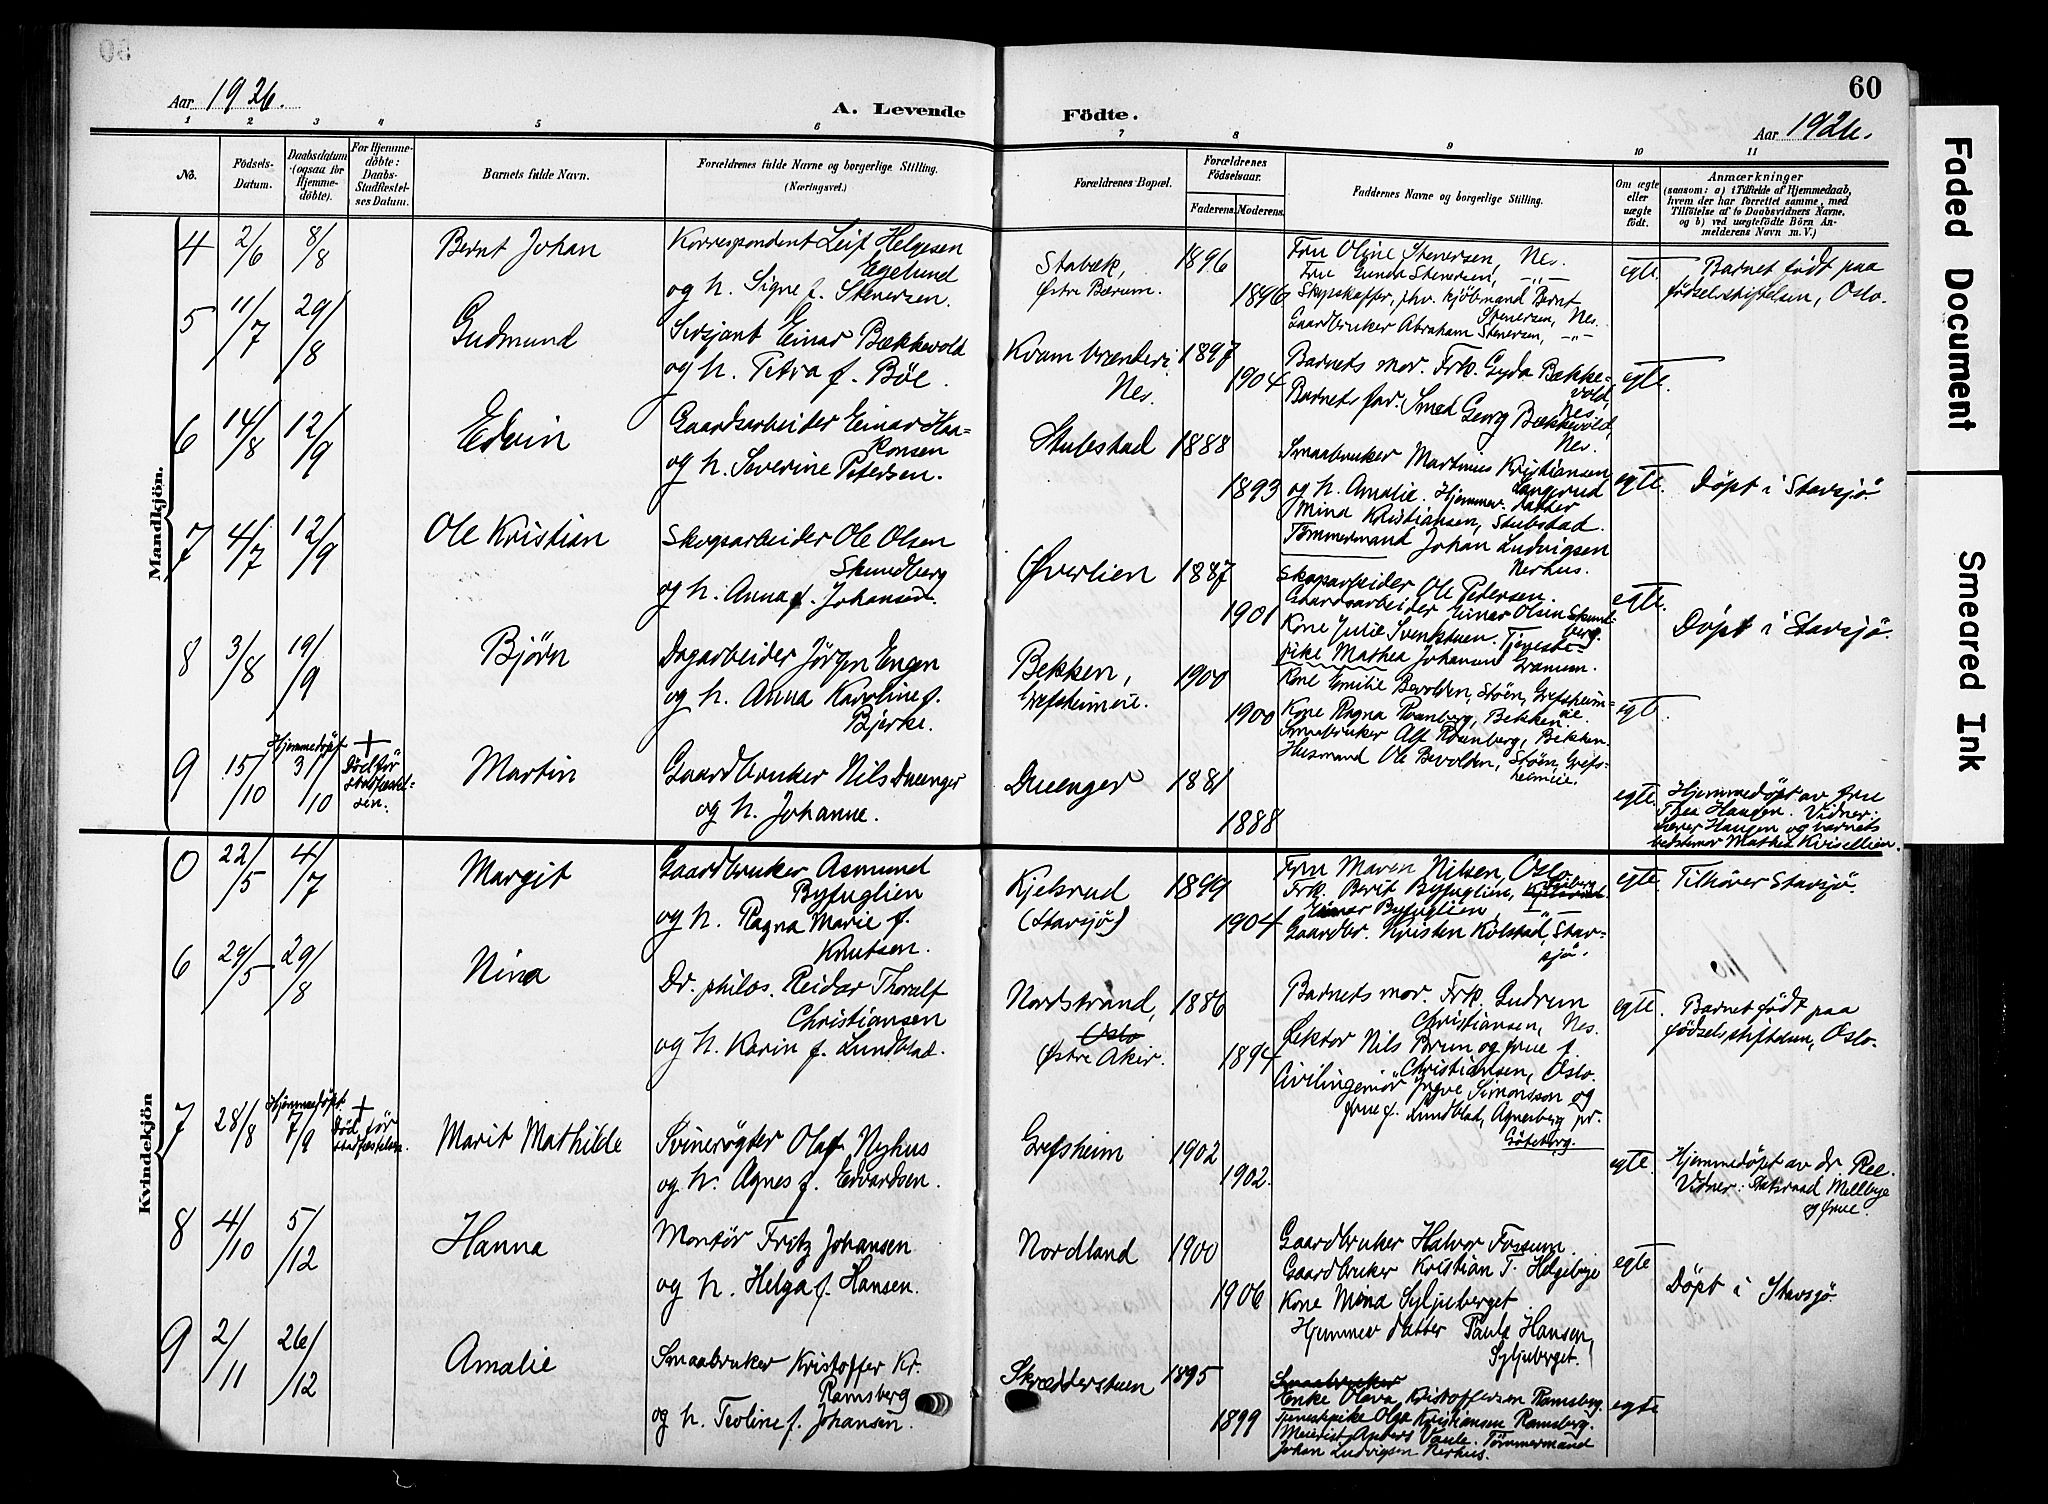 60
Aar 1926.
A. Levende Födte.
Aar 1926.
1 2 3 4 5 6 7 8 9 10 11
No.
Födsels-Datum.
Daabsdatum (ogsaa for Hjemme-döbte).
For Hjemme-döbte: Daabs-Stadfæstel-ses Datum.
Barnets fulde Navn.
Forældrenes fulde Navne og borgerlige Stilling. (Næringsvei.)
Forældrenes Bopæl.
Forældrenes Födselsaar.
Faderens. Moderens.
Faddernes Navne og borgerlige Stilling.
Om ægte eller uægte födt.
Anmærkninger
(saasom: a) i Tilfælde af Hjemmedaab, hvem der har forrettet samme, med Tilföielse af to Daabsvidners Navne, og b) ved uægtefödte Börn An-melderens Navn m. V.)
Mandkjön.
4 2/6 8/8 Bernt Johan
Korrespondent Leif Helgesen
Egelund
og h. Signe f. Stenersen.
Stabæk,
Østre Bærum.
1896
1896
Fru Oline Stenersen, Nes.
Frue Gunda Stenersen, —"—
Skipskaffer, fhv. kjöbmand Bernt
Stenersen, Nes.
Gaardbruker Abraham Stenersen, —"—
egte.
Barnet födt paa
födselsstiftelsen, Oslo.
5 11/7 29/8 Gudmund
Sersjant Einar Bækkevold
og h. Petra f. Böe.
Kvam
Nes.
1897
1904
Barnets mor. Frk. Gyda Bække-
vold,
Nes,
Barnets far. Smed Georg Bækkevold,
Nes.
egte.
6 14/8 12/9 Edvin
Gaardsarbeider Einar Haa-
konsen
og h. Severine Petersen.
Stubstad
1888
1893
Smaabruker Martinius Kristiansen
Langerud
og h. Amalie. Hjemmev. datter
Mina Kristiansen, Stubstad.
Tömmermand Johan Ludvigsen
Nerhus.
egte.
Döpt i Stavsjö
7 4/7 12/9 Ole Kristian
Skogsarbeider Ole Olsen
Skundberg
og h. Anna f. Johansen.
Øverlien
1887
1901
Skogsarbeider Ole Pedersen.
Gaardsarbeider Einar Olsen Skund-
berg.
Kone Julie Svenstuen. Tjeneste-
pike Mathea Johansen Granum.
egte.
Döpt i Stavsjö.
8 3/8 19/9 Björn
Dagarbeider Jörgen Engen
og h. Anna Karoline f.
Bjerke.
Bekken,
Grefsheimeie.
1900
1900
Kone Emilie Bevolden, Stöen, Grefsheim-
eie.
Kone Ragna Rosenberg, Bekken.
Smaabruker Alf Rosenberg, Bekken.
Husmand Ole Bevolden, Stöen, Grefs-
heimeie.
egte.
9 15/10 Hjemmedöpt 31/10
+
Död för
stadfæstel-
sen.
Martin
Gaardbruker Nils Dueenger
og h. Johanne.
Dueenger
1881
1888
egte.
Hjemmedöpt av frue
Thea Haugen. Vidner:
Lærer Haugen og barnets
bestemor Mathea Kvisellien.
Kvindekjön
0 22/5 4/7 Margit
Gaardbruker Asmund
Byfuglien
og h. Ragna Marie f.
Knutsen.
Kjelsrud
(Stavsjö)
1899
1904
Fru Maren Nilsen, Oslo
Frk. Berit Byfuglien,
Einar Byfuglien, —"—
Gaardbr. Kristen Kolstad, Stav-
sjö.
egte.
Tilhörer Stavsjö.
6 29/5 29/8 Nina
Dr. philos. Reidar Thoralf
Christiansen
og h. Karin f. Lundblad.
Nordstrand,
Oslo
Østre Aker.
1886
1894
Barnets mor. Frk. Gudrun
Christiansen, Nes.
Lektor Nils Brun og frue f.
Christiansen, Oslo.
Civilingeniör Yngve Simonsson og
frue f. Lundblad, Agnesberg pr.
Göteborg.
egte.
Barnet födt paa
födselsstiftelsen, Oslo.
7 28/8 Hjemmedöpt 7/9
+
Död för
stadfæstelsen.
Marit Mathilde
Svinerögter Olaf Nyhus
og h. Agnes f. Edvardsen.
Grefsheim
1902
1902.
egte.
Hjemmedöpt av dr. Ree.
Vidner: Statsraad Mellbye
og frue.
8 4/10 5/12 Hanna
Montör Fritz Johansen
og h. Helga f. Hansen.
Nordland
1900
1906
Gaardbruker Halvor Fossum.
Gaardbruker Kristian T. Helgebye
Kone Mina Syljuberget.
Hjemmev datter Paula Hansen,
Syljuberget.
egte
Döpt i Stavsjö.
9 2/11 26/12 Amalie
Smaabruker Kristoffer Kr.
Ramsberg
og h. Teoline f. Johansen.
Skrædderstuen
1895
1899
Smaabruker
Enke Olava Kristoffersen Ramsberg.
Tjenestepike Olga Kristiansen Ramsberg.
Meierist Anders Vaule. Tömmermand
Johan Ludvigsen Nerhus.
egte
Faded Document
Smeared Ink